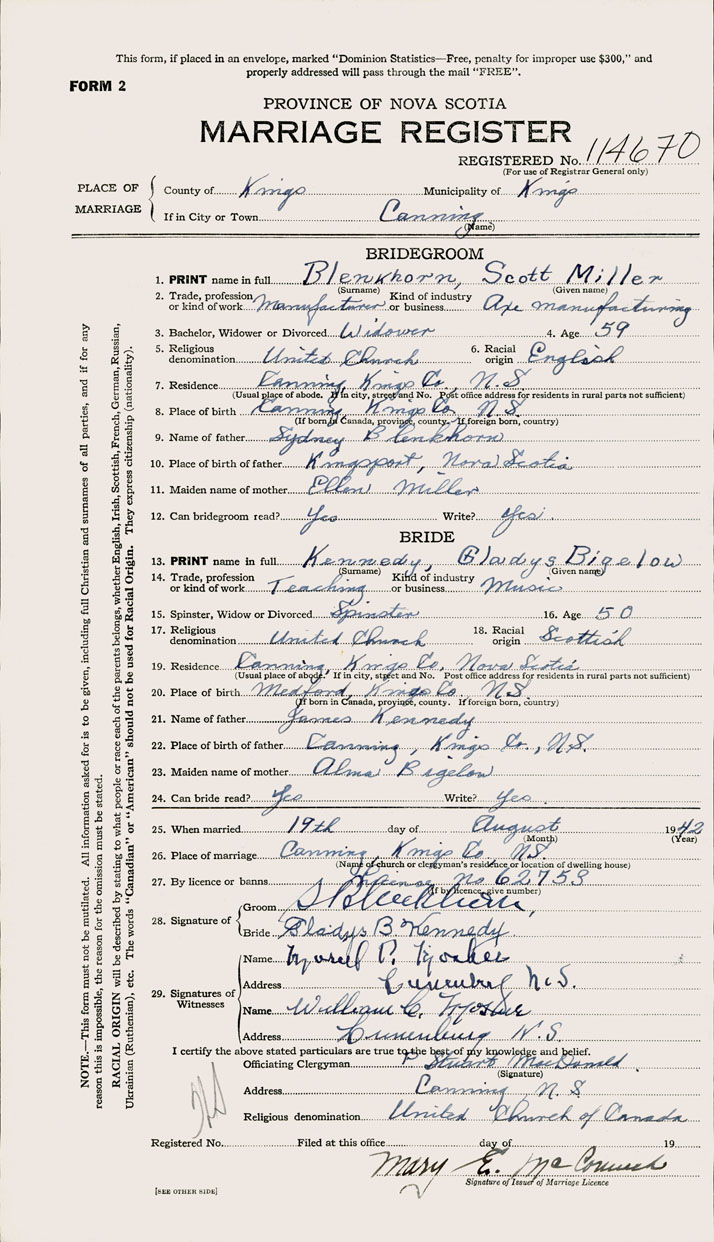 This form, if placed in an envelope, marked "Dominion Statistics—Free, penalty for improper use $300," and
properly addressed will pass through the mail "FREE".
FORM 2
PROVINCE OF NOVA SCOTIA
MARRIAGE REGISTER
REGISTERED No. 114670
(For use of Registrar General only)
PLACE OF MARRIAGE
County of Kings Municipality of Kings
If in City or Town Canning
(Name)
BRIDEGROOM
1. PRINT name in full Blenkhorn, Scott Miller
(Surname) (Given name)
2. Trade, profession or kind of work Manufacturer Kind of industry or business Axe manufacturing
3. Bachelor, Widower or Divorced Widower 4. Age 59
5. Religious denomination United Church 6. Racial origin English
7. Residence Canning Kings Co., N.S.
(Usual place of abode. If in city, street and No. Post office address for residents in rural parts not sufficient)
8. Place of birth Canning, Kings Co. N.S.
(If born in Canada, province, county. If foreign born, country)
9. Name of father Sydney Blenkhorn
10. Place of birth of father Kingsport, Nova Scotia
11. Maiden name of mother Ellen Miller
12. Can bridegroom read? Yes Write? Yes.
BRIDE
13. PRINT name in full Kennedy, Gladys Bigelow
(Surname) (Given name)
14. Trade, profession or kind of work Teaching Kind of industry or business Music
15. Spinster, Widow or Divorced Spinster 16. Age 50
17. Religious denomination United Church 18. Racial origin Scottish
19. Residence Canning, Kings Co. Nova Scotia
(Usual place of abode. If in city, street and No. Post office address for residents in rural parts not sufficient)
20. Place of birth Medford, Kings Co. N.S.
(If born in Canada, province, county. If foreign born, country)
21. Name of father James Kennedy
22. Place of birth of father Canning, Kings Co., N.S.
23. Maiden name of mother Alma Bigelow
24. Can bride read? Yes Write? Yes.
25. When married 19th day of August 1942
(Month) (Year)
26. Place of marriage Canning, Kings Co., N.S.
(Name of church or clergyman's residence or location of dwelling house)
27. By licence or banns License No 62753
(If by licence, give number)
28. Signature of
Groom S Blenkhorn,
Bride Gladys B. Kennedy
29. Signatures of Witnesses
Name P.
Address Lunenburg N.S.
Name William C.
Address Lunenburg N.S.
I certify the above stated particulars are true to the best of my knowledge and belief.
Officiating Clergyman P Stuart MacDonald
(Signature)
Address Canning, N.S.
Religious denomination United Church of Canada
Registered No. Filed at this office day of 19
Mary E.
Signature of Issuer of Marriage Licence
[SEE OTHER SIDE]
NOTE.—This form must not be mutilated. All information asked for is to be given, including full Christian and surnames of all parties, and if for any
reason this is impossible, the reason for the omission must be stated.
RACIAL ORIGIN will be described by stating to what people or race each of the parents belongs, whether English, Irish, Scottish, French, German, Russian,
Ukrainian (Ruthenian), etc. The words "Canadian" or "American" should not be used for Racial Origin. They express citizenship (nationality).